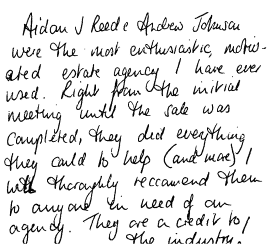 Aidan J Reede Andrew Johnson
were the most enthusiastic, motiv-
ated estate agency I have ever
used. Right from the initial
meeting until the sale was
completed, they did everything
they could to help (and more) I
will thoroughly reccomend them
to anyone in need of an
agency. They are a credit to
the industry.